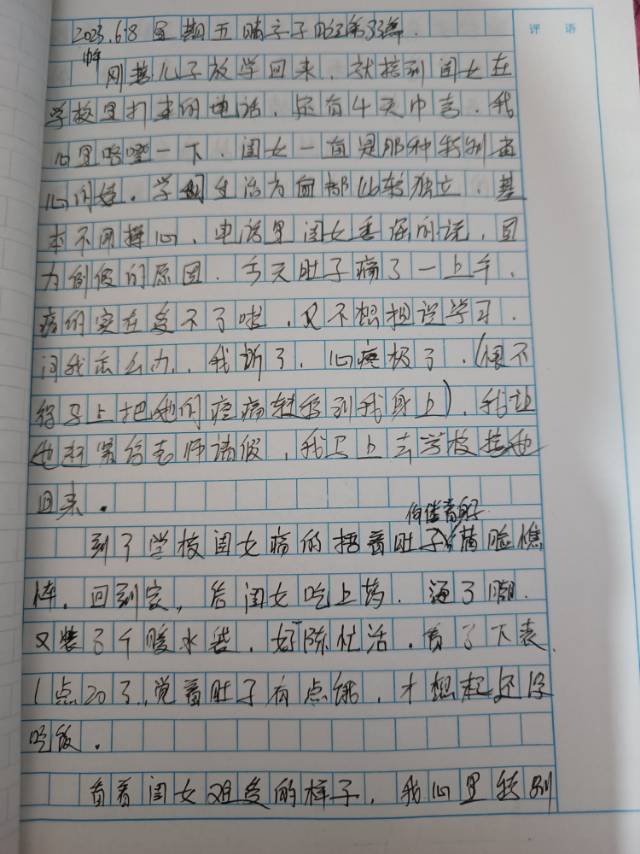 2023.6.8 星期五 晴 亲子日记第33篇
评 语
中午
刚接儿子放学回来，就接到闺女在
学校里打来的电话，还有4天中考，我
心里咯噔一下，闺女一直是那种特别省
心的娃。学习生活方面都比较独立，基
本不用操心，电话里闺女委屈的说，因
为例假的原因，今天肚子痛了一上午，
痛的实在受不了啦，又不想耽误学习。
问我怎么办，我听了，心疼极了，（恨不
得马上把她的疼痛转移到我身上），我让
她赶紧给老师请假，我马上去学校接她
回来。
到了学校闺女痛的捂着肚子满脸憔
悴，回到家，给闺女吃上药，泡了脚，
又装了个暖水袋，好一阵忙活，看了下表，
1点20了，觉着肚子有点饿，才想起还没
吃饭。
看着闺女难受的样子，我心里特别